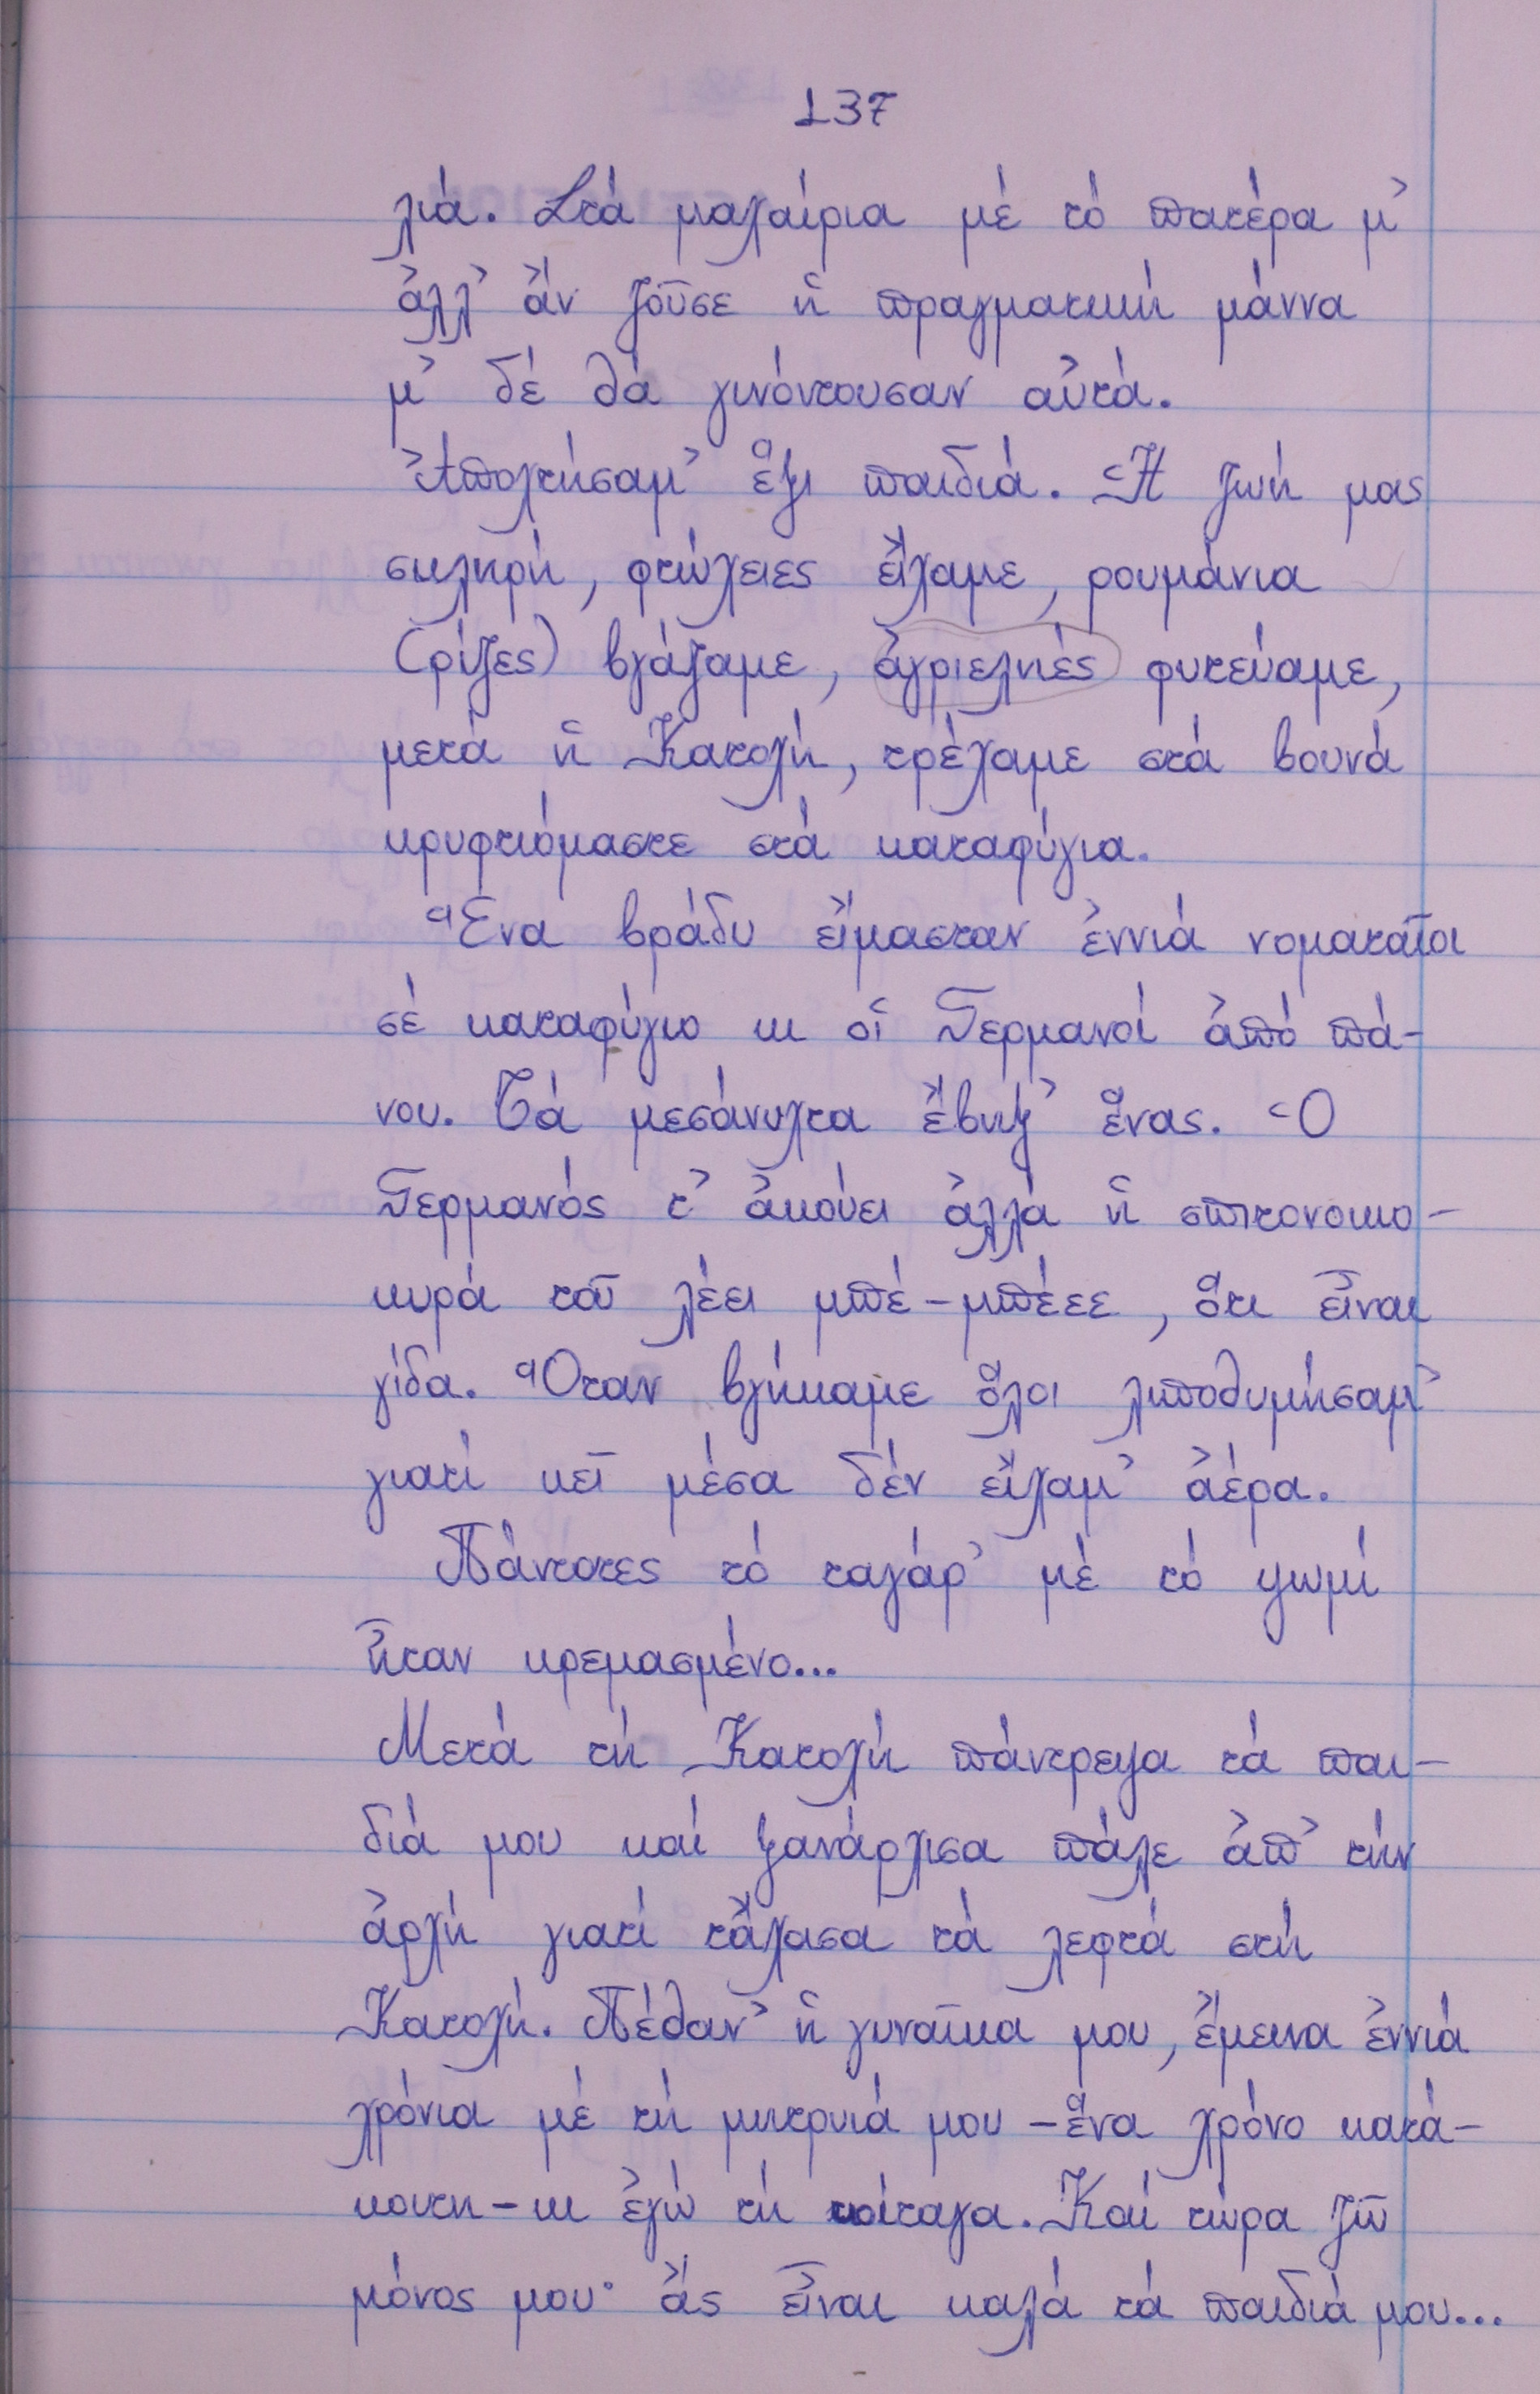 137
λιά. Στά μαχαίρια μέ τό πατέρα μ᾿
ἀλλ᾿ ἄν ζοῦσε ἡ πραγματική μάννα
μ᾿ δέ θά γινόντουσαν αὐτά.
Ἀποχτήσαμ᾿ ἕξι παιδιά. Ἡ ζωή μας
σκληρή, φτώχειες εἴχαμε, ρουμάνια
(ρίζες) βγάζαμε, ἀγριελιές φυτεύαμε,
μετά ἡ Κατοχή, τρέχαμε στά βουνά
κρυφτιόμαστε στά καταφύγια.
Ἕνα βράδυ εἴμασταν ἐννιά νοματαῖοι
σέ καταφύγιο κι οἱ Γερμανοί ἀπό πά-
νου. Τά μεσάνυχτα ἔβηξ᾿ ἕνας. Ὁ
Γερμανός τ᾿ ἀκούει ἀλλά ἡ σπιτονοικο-
κυρά τοῦ λέει μπέ-μπέεε, ὅτι εἶναι
γίδα. Ὅταν βγήκαμε ὅλοι λιποθυμήσαμ᾿
γιατί κεῖ μέσα δέν εἴχαμ᾿ ἀέρα.
Πάντοτες τό ταγάρ᾿ μέ τό ψωμί
ἦταν κρεμασμένο...
Μετά τή Κατοχή πάντρεψα τά παι-
διά μου καί ξανάρχισα πάλε ἀπ᾿ τήν
ἀρχή γιατί τἄχασα τά λεφτά στή
Κατοχή. Πέθαν᾿ ἡ γυναῖκα μου, ἔμεινα ἐννιά
χρόνια μέ τή μητρυιά μου - ἕνα χρόνο κατά-
κοιτη - κι ἐγώ τή κοίταγα. Καί τώρα ζῶ
μόνος μου· ἄς εἶναι καλά τά παιδιά μου...